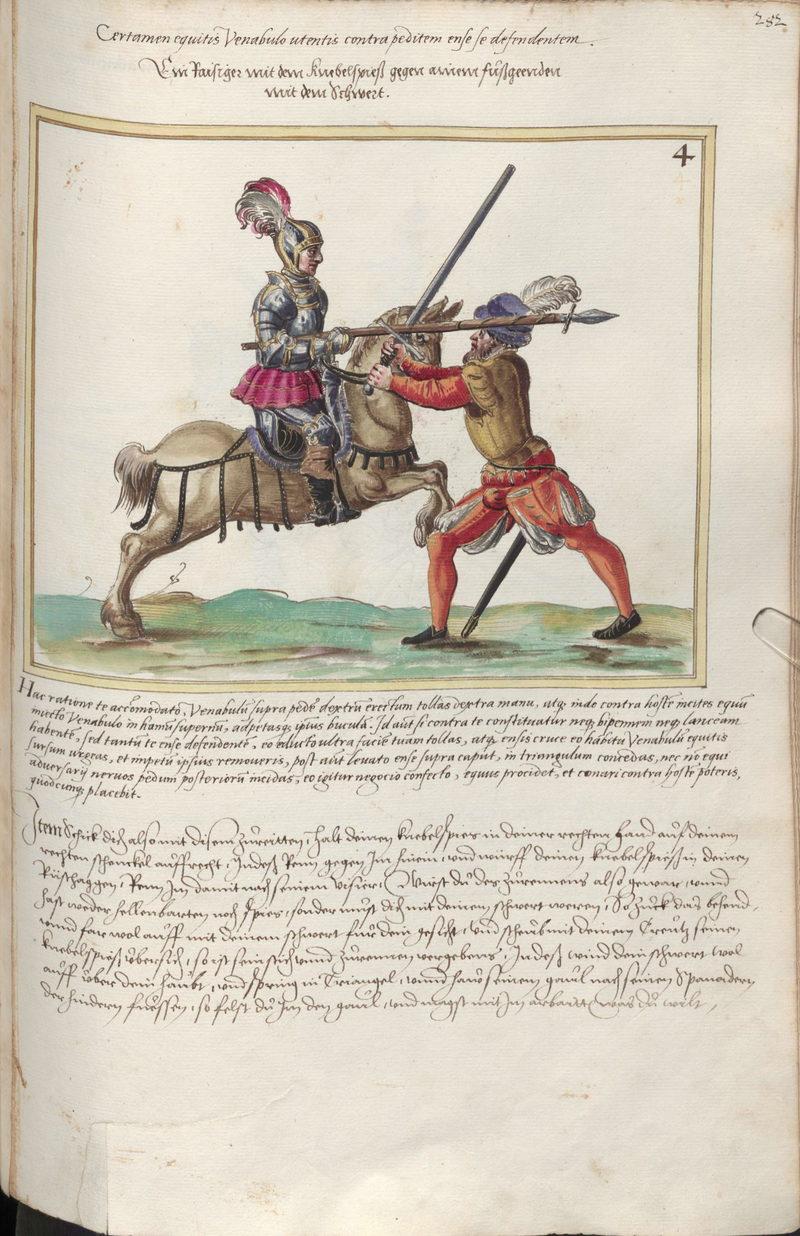 282
Certamen equitis Venabulo utentis contra peditem ense se defendentem.
Ein Raisiger mit dem Knebelspieß gegen ainem fůßgeenden
mit dem Schwert.
4
Hac ratione te accõmodato, Venabulũ supra pedẽ dextrũ erectum tollas dextra manu, atq; inde contra hostẽ incites equũ
iniecto Venabulo in hamũ supernũ, adpetasq; ipsius buculã. Id aũt si contra te constituatur neq; bipennem neq; lanceam
habentẽ, sed tantũ te ense defendentẽ, eo educto ultra faciẽ tuam tollas, atq; ensis cruce eo habitu Venabulũ equitis
sursum urgeas, et impetũ ipsius removeris, post aũt levato ense supra caput, in triangulum concedas, nec nõ equi
adversarij nervos pedum posteriorũ incidas, eo igitur negocio confecto, equus procidet, et conari contra hostẽ poteris,
quodcunq; placebit.
Item Schick dich also mit disem zůreitten, halt deinen knebelspies in deiner rechten hand auf deinem
rechten schenckel auffrecht, Indeß Renn gegen Im hinein, und würff deinen knebelspieß in deinen
Rüschaggen, Renn Im damit nach seinem visier, Wurst dů des zůrennens also gewar, unnd
hast weder hellenbarten noch spies, sonder můst dich mit deinem schwert weren, So zuck das behend,
unnd far wol auff mit deinem schwert für dein gesicht, und scheub mit deinem Creütz seinen
knebelspieß übersich, so ist sein stich unnd zůrennen vergebens, Indeß wind dein schwert wol
auff über dein haubt, und spring in Triangel, unnd haw seinem gaul nach seinen Spanadern
der hindern fuessen, so felst dů Im den gaul, und magst mit Im arbaitten was dů wilt,